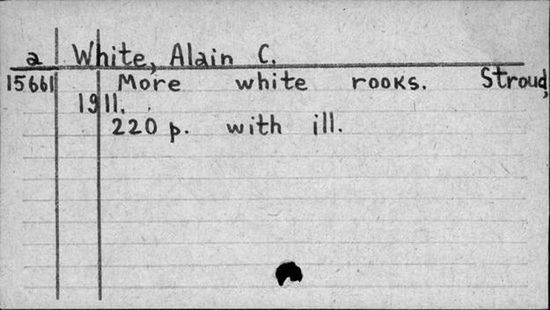 a White, Alain C.
15661 More white rooks. Stroud,
1911.
220 p. with ill.